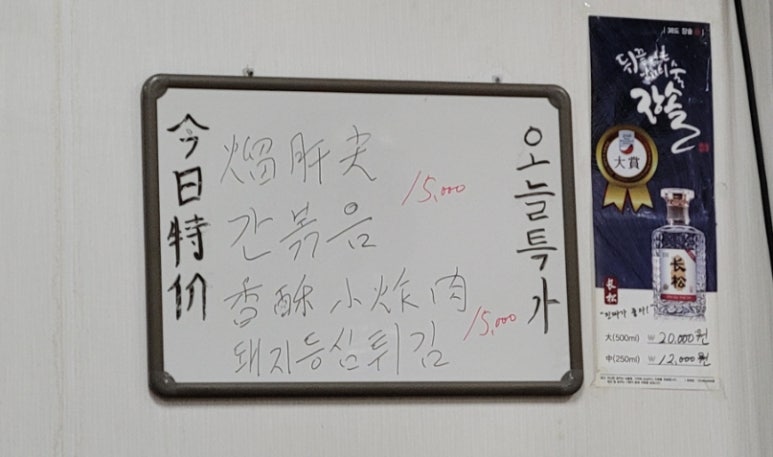 今日特价
熘肝尖
15,000
간볶음
香酥小炸肉
15,000
돼지등심튀김
오늘특가
장솔
大賞
长松
长松
大(500ml) ₩ 20,000원
中(250ml) ₩ 12,000원